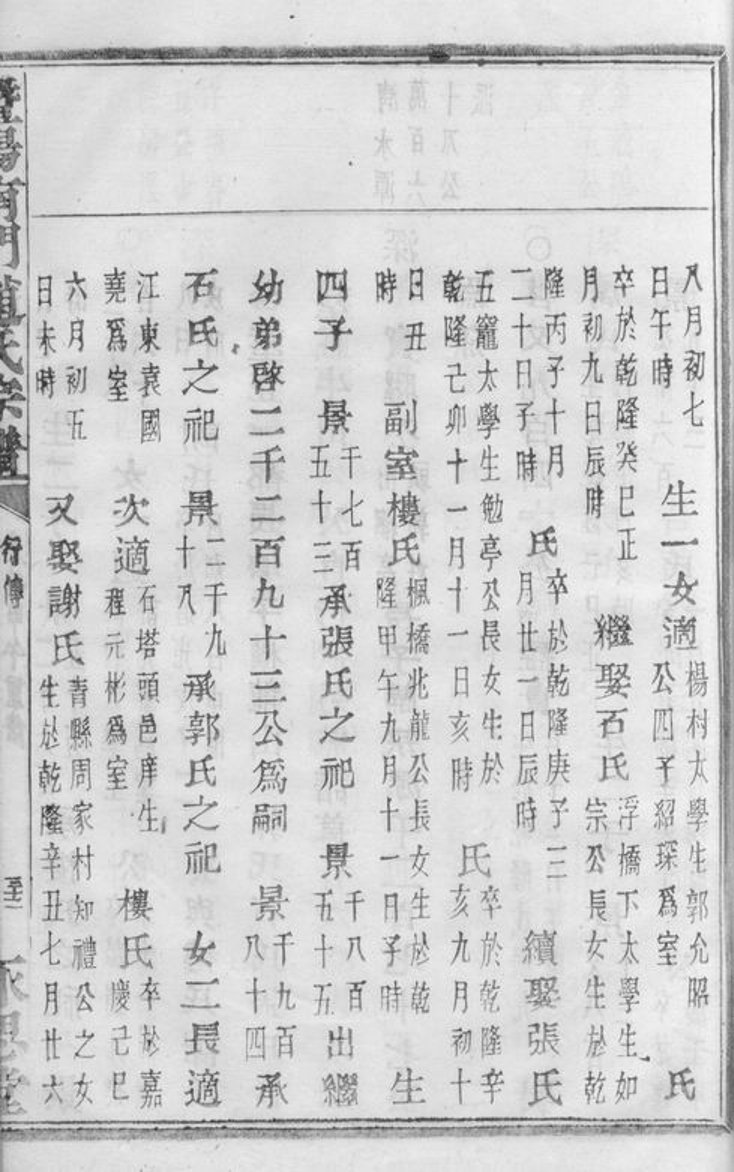 八月初七日午時 生一女適楊村太學生郭允昭公四子紹琛爲室 氏
卒於乾隆癸巳正月初九日辰時 繼娶石氏浮橋下太學生如宗公長女生於乾
隆丙子十月二十日子時 氏卒於乾隆庚子三月廿一日辰時 續娶張氏
五竈太學生勉亭公長女生於乾隆己卯十一月十一日亥時 氏卒於乾隆辛亥九月初十
日丑時 副室樓氏楓橋兆龍公長女生於乾隆甲午九月十一日子時 生
四子 景千七百五十三承張氏之祀 景千八百五十五出繼
幼弟啓二千二百九十三公爲嗣 景千九百八十四承
石氏之祀 景二千九十八承郭氏之祀 女二長適
江東袁國堯爲室 次適石塔頭邑庠生程元彬爲室 樓氏卒於嘉慶己巳
六月初五日未時 又娶謝氏青縣周家村知禮公之女生於乾隆辛丑七月廿六
暨陽南門趙氏宗譜 行傳 永思堂